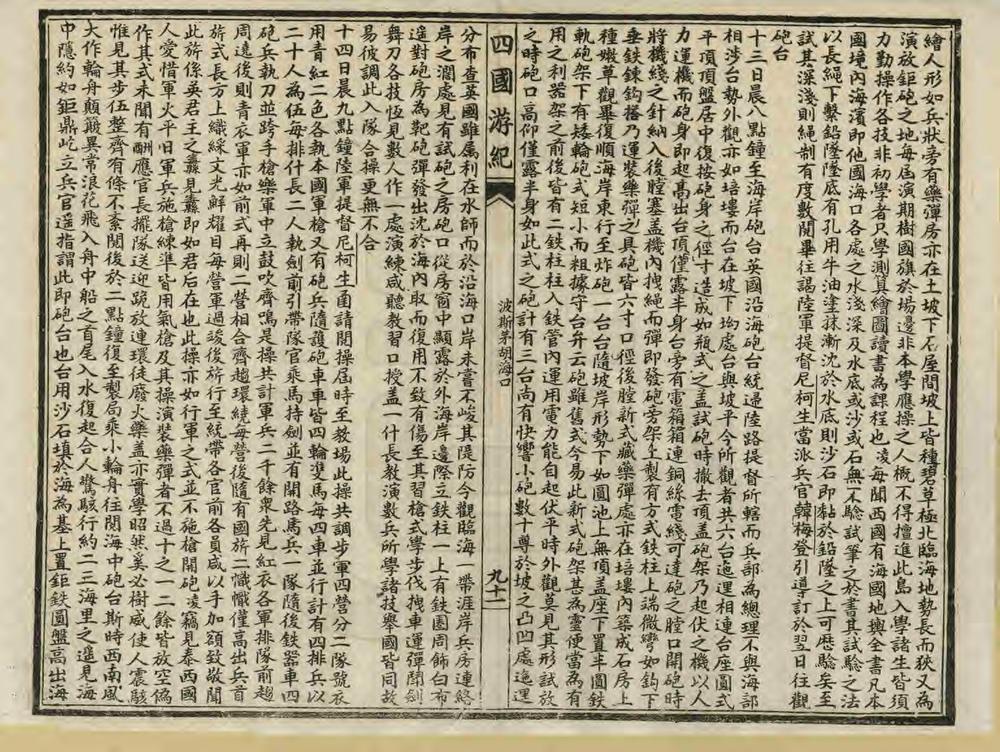 繪人形如兵狀旁有藥彈房亦在土坡下石屋間坡上皆種碧草極北臨海地勢長而狹又為
演放鉅砲之地每屆演期樹國旗於場邊非本學應操之人概不得擅進此島入學諸生皆須
力勤操作各技非初學者只學測算繪圖讀書為課程也凌每聞西國有海國地輿全書凡本
國境內海濱即他國海口各處之水淺深及水底或沙或石無不驗試筆之於書其試驗之法
以長繩下繫鉛墜墜底有孔用牛油塗抹漸沈於水底則沙石即黏於鉛墜之上可歷驗矣至
試其深淺則繩制有度數閱畢往謁陸軍提督尼柯生當派兵官韓梅登引導訂於翌日往觀
砲台
十三日晨八點鐘至海岸砲台英國沿海砲台統歸陸路提督所轄而兵部為總理不與海部
相涉台勢外觀亦如培塿而台在坡下坳處台與坡平今所觀者共六台迤運相連台座圓式
平頂頂盤居中復按砲身之徑寸造成如瓶式之盖試砲時撤去頂盖砲架乃起伏之機以人
力運機而砲身即起高出台頂僅露半身台旁有電箱箱連銅絲電綫可達砲之膛口開砲時
將機綫之針納入後膛塞盖機內拽繩而彈即發砲旁架上製有方式鐵柱上端微彎如鈎下
垂鐵鍊鈎搭乃運裝藥彈之具砲皆六寸口徑後膛新式藏藥彈處亦在培塿內築成石房上
種嫩草觀畢復順海岸東行至炸砲一台台隨坡岸形勢下如圓池上無頂盖座下置半圓鐵
軌砲架下有矮輪砲式短小而粗據守台弁云砲雖舊式今易此新式砲架甚為靈便當為有
用之利器架之前後皆有二鐵柱柱入鐵管內運用電力能自起伏平時外觀莫見其形試放
之時砲口高仰僅露半身如此式之砲計有三台尚有快響小砲數十尊於坡之凸凹處迤運
四國游紀
波斯茅胡海口
九十一
分布查英國雖屬利在水師而於沿海口岸未嘗不峻其隄防今觀臨海一帶涯岸兵房連絡
岸之濶處見有試砲之房砲口從房窗中顯露於外海岸邊際立鐵柱一上有鐵圈周飾白布
遙對砲房為靶砲彈發出沈於海內取而復用不致有傷至其習槍式學步伐拽車運彈鬥劍
舞刀各技恆見數人作一處演練咸聽教習口授盖一什長教演數兵所學諸技舉國皆同故
易彼調此入隊合操更無不合
十四日晨九點鐘陸軍提督尼柯生函請閱操屆時至教場此操共調步軍四營分二隊號衣
用青紅二色各執本國軍槍又有砲兵隨護砲車車皆四輪雙馬每四車並行計有四排兵以
二十人為伍每排什長二人執劍前引帶隊官乘馬持劍並有開路馬兵一隊隨後鐵器車四
砲兵執刀並跨手槍樂軍中立鼓吹齊鳴是操共計軍兵二千餘眾先見紅衣各軍排隊前趨
周遶後則青衣軍亦如前式再則二營相合齊趨環繞每營後隨有國旂二幟幟僅高出兵首
旂式長方上織綵文光鮮耀目每營軍過竣後旂行至統帶各官前各員咸以手加額致敬聞
此旂係英君主之纛見纛即如君后在也此操亦如行軍之式並不施槍開砲凌竊見泰西國
人愛惜軍火平日軍兵施槍練準皆用氣槍及其操演裝藥彈者不過十之一二餘皆放空偽
作其式未聞有酬應官長擺隊送迎跪放連環徒廢火藥盖亦實學昭然奚必樹威使人震駭
惟見其步伍整齊有條不紊閱後於二點鐘復至製局乘小輪舟往閱海中砲台斯時西南風
大作輪舟顛簸異常浪花飛入舟中船之首尾入水復起合人驚駭行約二三海里之遥見海
中隱約如鉅鼎屹立兵官遥指謂此即砲台也台用沙石填於海為基上置鉅鉄圓盤高出海